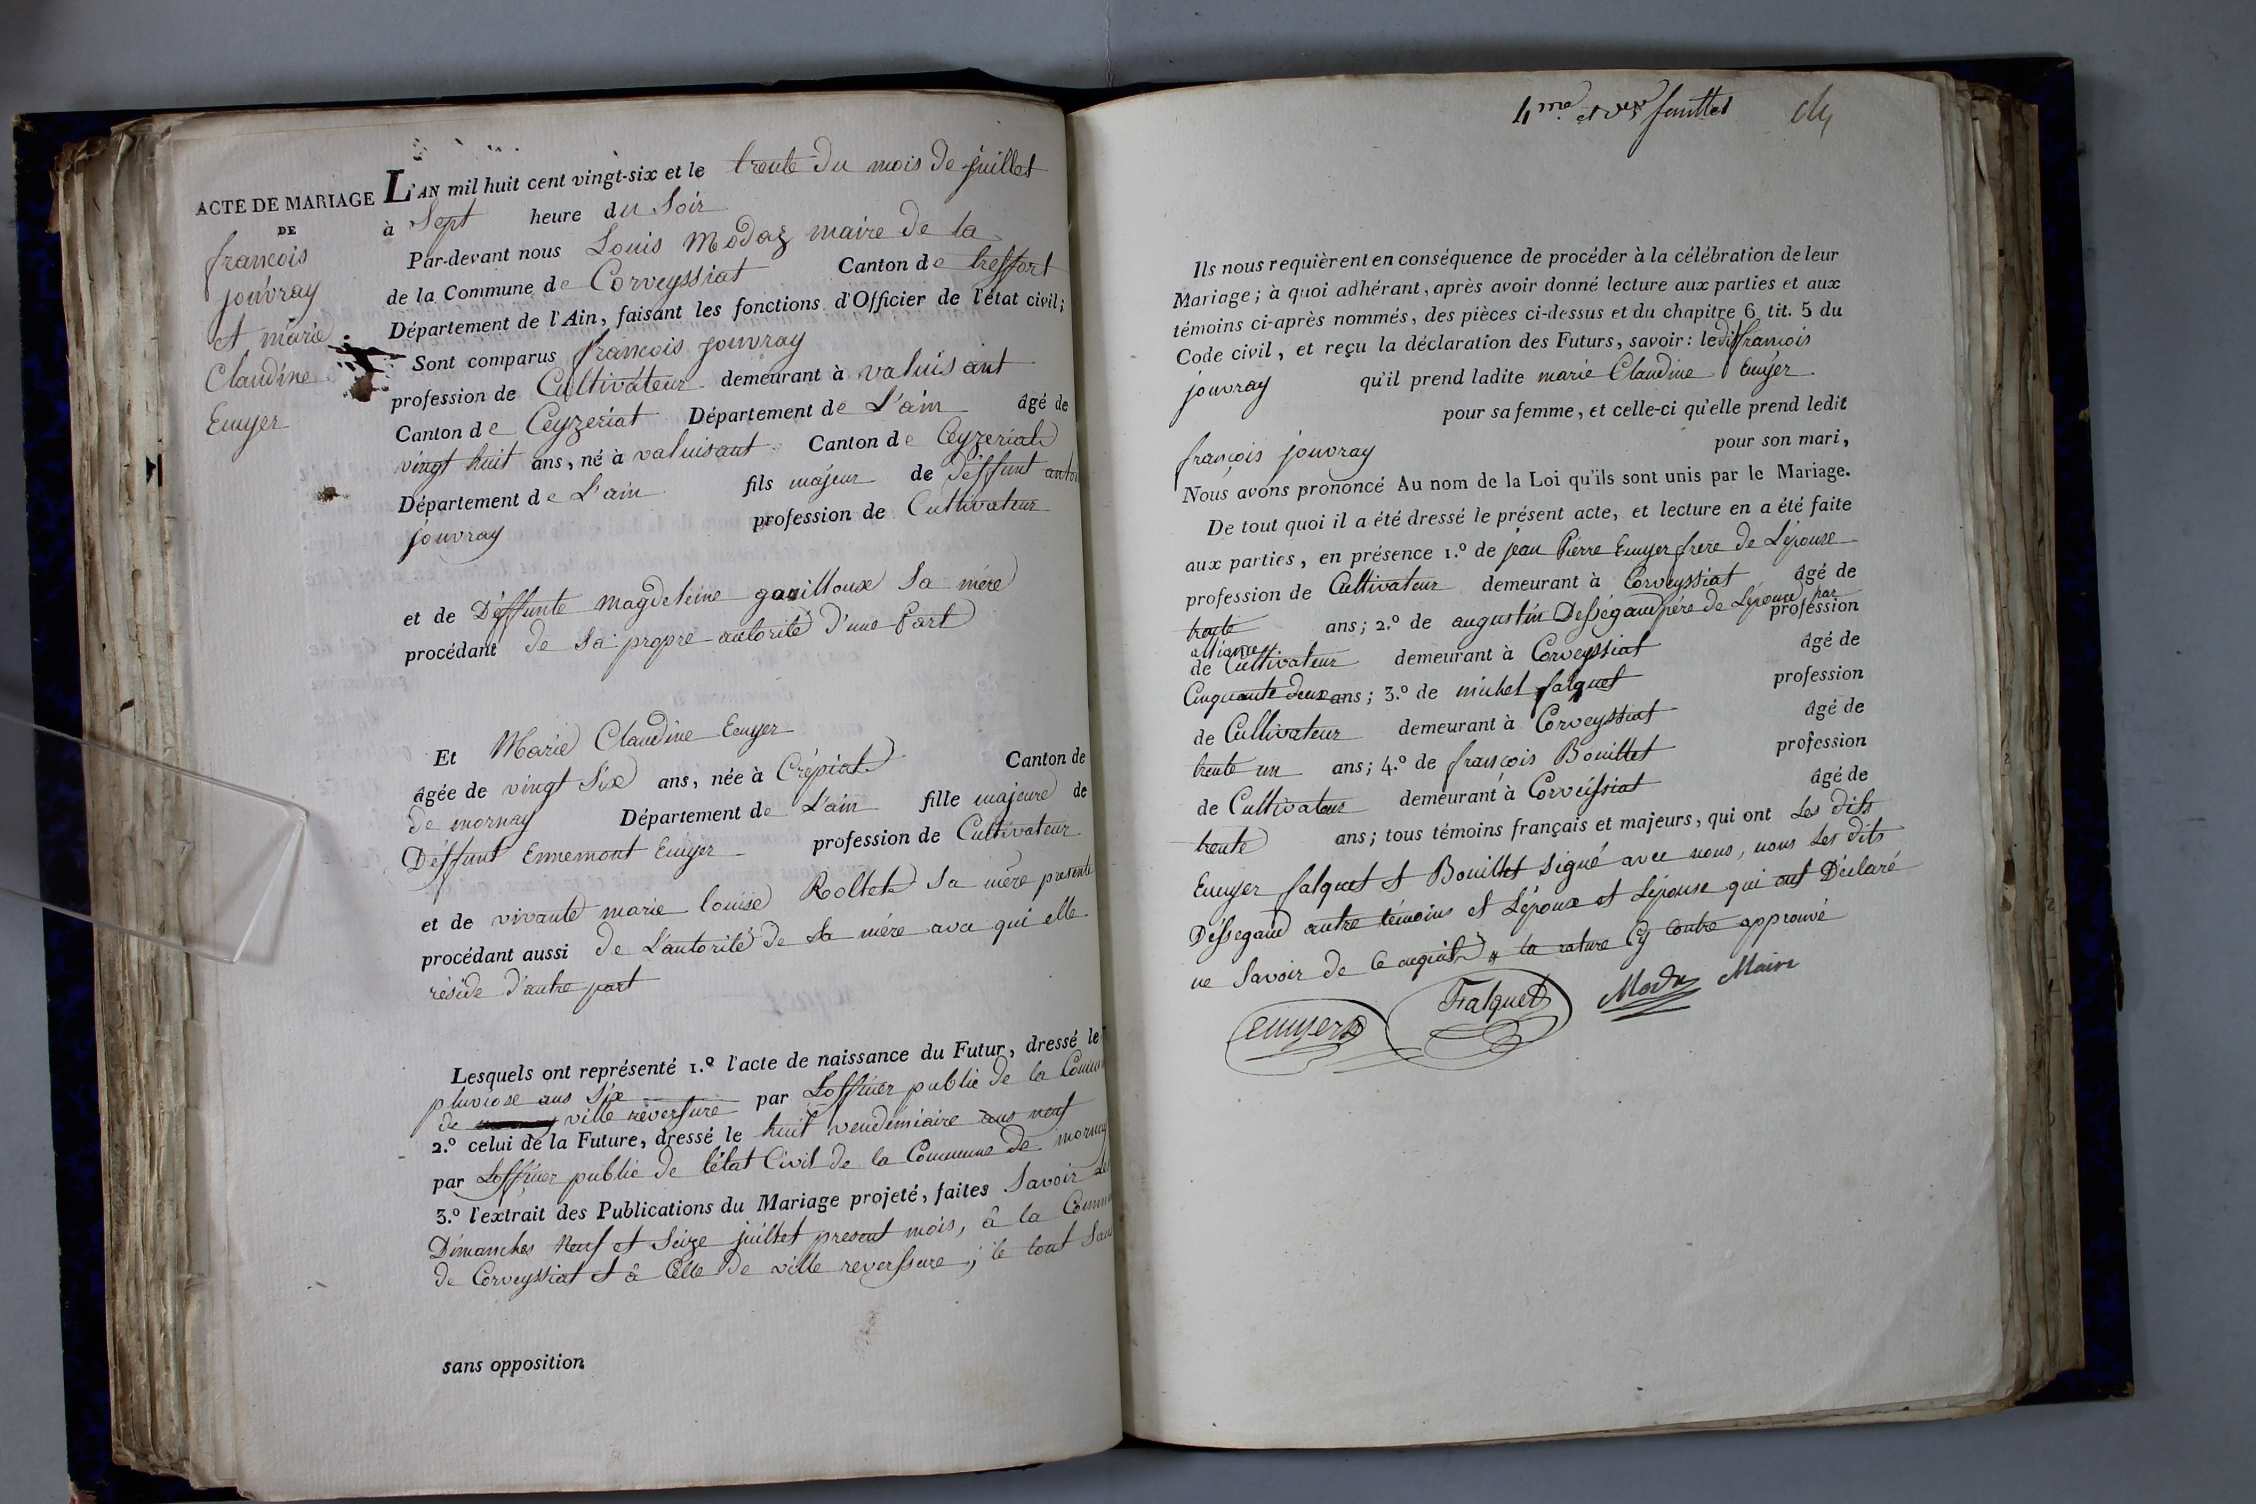 ACTE DE MARIAGE
DE
francois
jouvray
et marie
Claudine
Emyer
L'AN mil huit cent vingt-six et le trente du mois de juillet
à Sept heure du Soir
Par-devant nous Louis Modaz maire de la
de la Commune de Corveyssiat Canton de treffort
Département de l'Ain, faisant les fonctions d'Officier de l'état civil;
Sont comparus francois jouvray
profession de Cultivateur demeurant à valuisant
Canton de Ceyzeriat Département de L'ain âgé de
vingt huit ans, né à valuisant Canton de Ceyzeriat
Département de L'ain fils majeur de deffunt
jouvray profession de Cultivateur
et de Deffunte magdeleine Sa mère
procédant de Sa propre autorité d'une Part
Et Marie Claudine Emyer
âgée de vingt Six ans, née à Crépiat Canton de
de mornay Département de L'ain fille majeure de
Déffunt Ennemont Emyer profession de Cultivateur
et de vivante marie louise Rollet Sa mère presente
procédant aussi de L'autorité de Sa mére avec qui elle
réside d'autre part
Lesquels ont représenté 1.º l'acte de naissance du Futur, dressé le
pluviose ans Six
de ville reversure par Lofficier public de la
2.º celui de la Future, dressé le huit vendémiaire ans neuf
par Lofficier public de l'état Civil de la Commune de mornay
3.º l'extrait des Publications du Mariage projeté, faites Savoir
Dimanches Neuf et Seize juillet present mois, â la
de Corveyssiat et â Celle de ville reverssure; le tout
sans opposition
4me et feuillet
Ils nous requièrent en conséquence de procéder à la célébration de leur
Mariage; à quoi adhérant, après avoir donné lecture aux parties et aux
témoins ci-après nommés, des pièces ci-dessus et du chapitre 6, tit. 5 du
Code civil, et reçu la déclaration des Futurs, savoir: ledit francois
jouvray qu'il prend ladite marie Claudine Emyer
pour sa femme, et celle-ci qu'elle prend ledit
françois jouvray pour son mari,
Nous avons prononcé Au nom de la Loi qu'ils sont unis par le Mariage.
De tout quoi il a été dressé le présent acte, et lecture en a été faite
aux parties, en présence 1.º de jean Pierre Emyer frere de L'épouse
profession de Cultivateur demeurant à Corveyssiat âgé de
trente ans; 2.º de augustin Dességaud pére de L'épouse par profession
alliance
de Cultivateur demeurant à Corveyssiat âgé de
Cinquante deux ans; 3.º de michel falquet profession
de Cultivateur demeurant à Corveyssiat âgé de
trente un ans; 4.º de françois Bouillet profession
de Cultivateur demeurant à Corveissiat âgé de
trente ans; tous témoins français et majeurs, qui ont Les dits
Emyer falquet et Bouillet Signé avec nous, nous Les dits
Dessegaud autre témoins et L'époux et L'épouse qui ont Déclaré
ne Savoir de Ce requis la rature Cy Contre approuvé
Emyer Falquet Modaz Maire